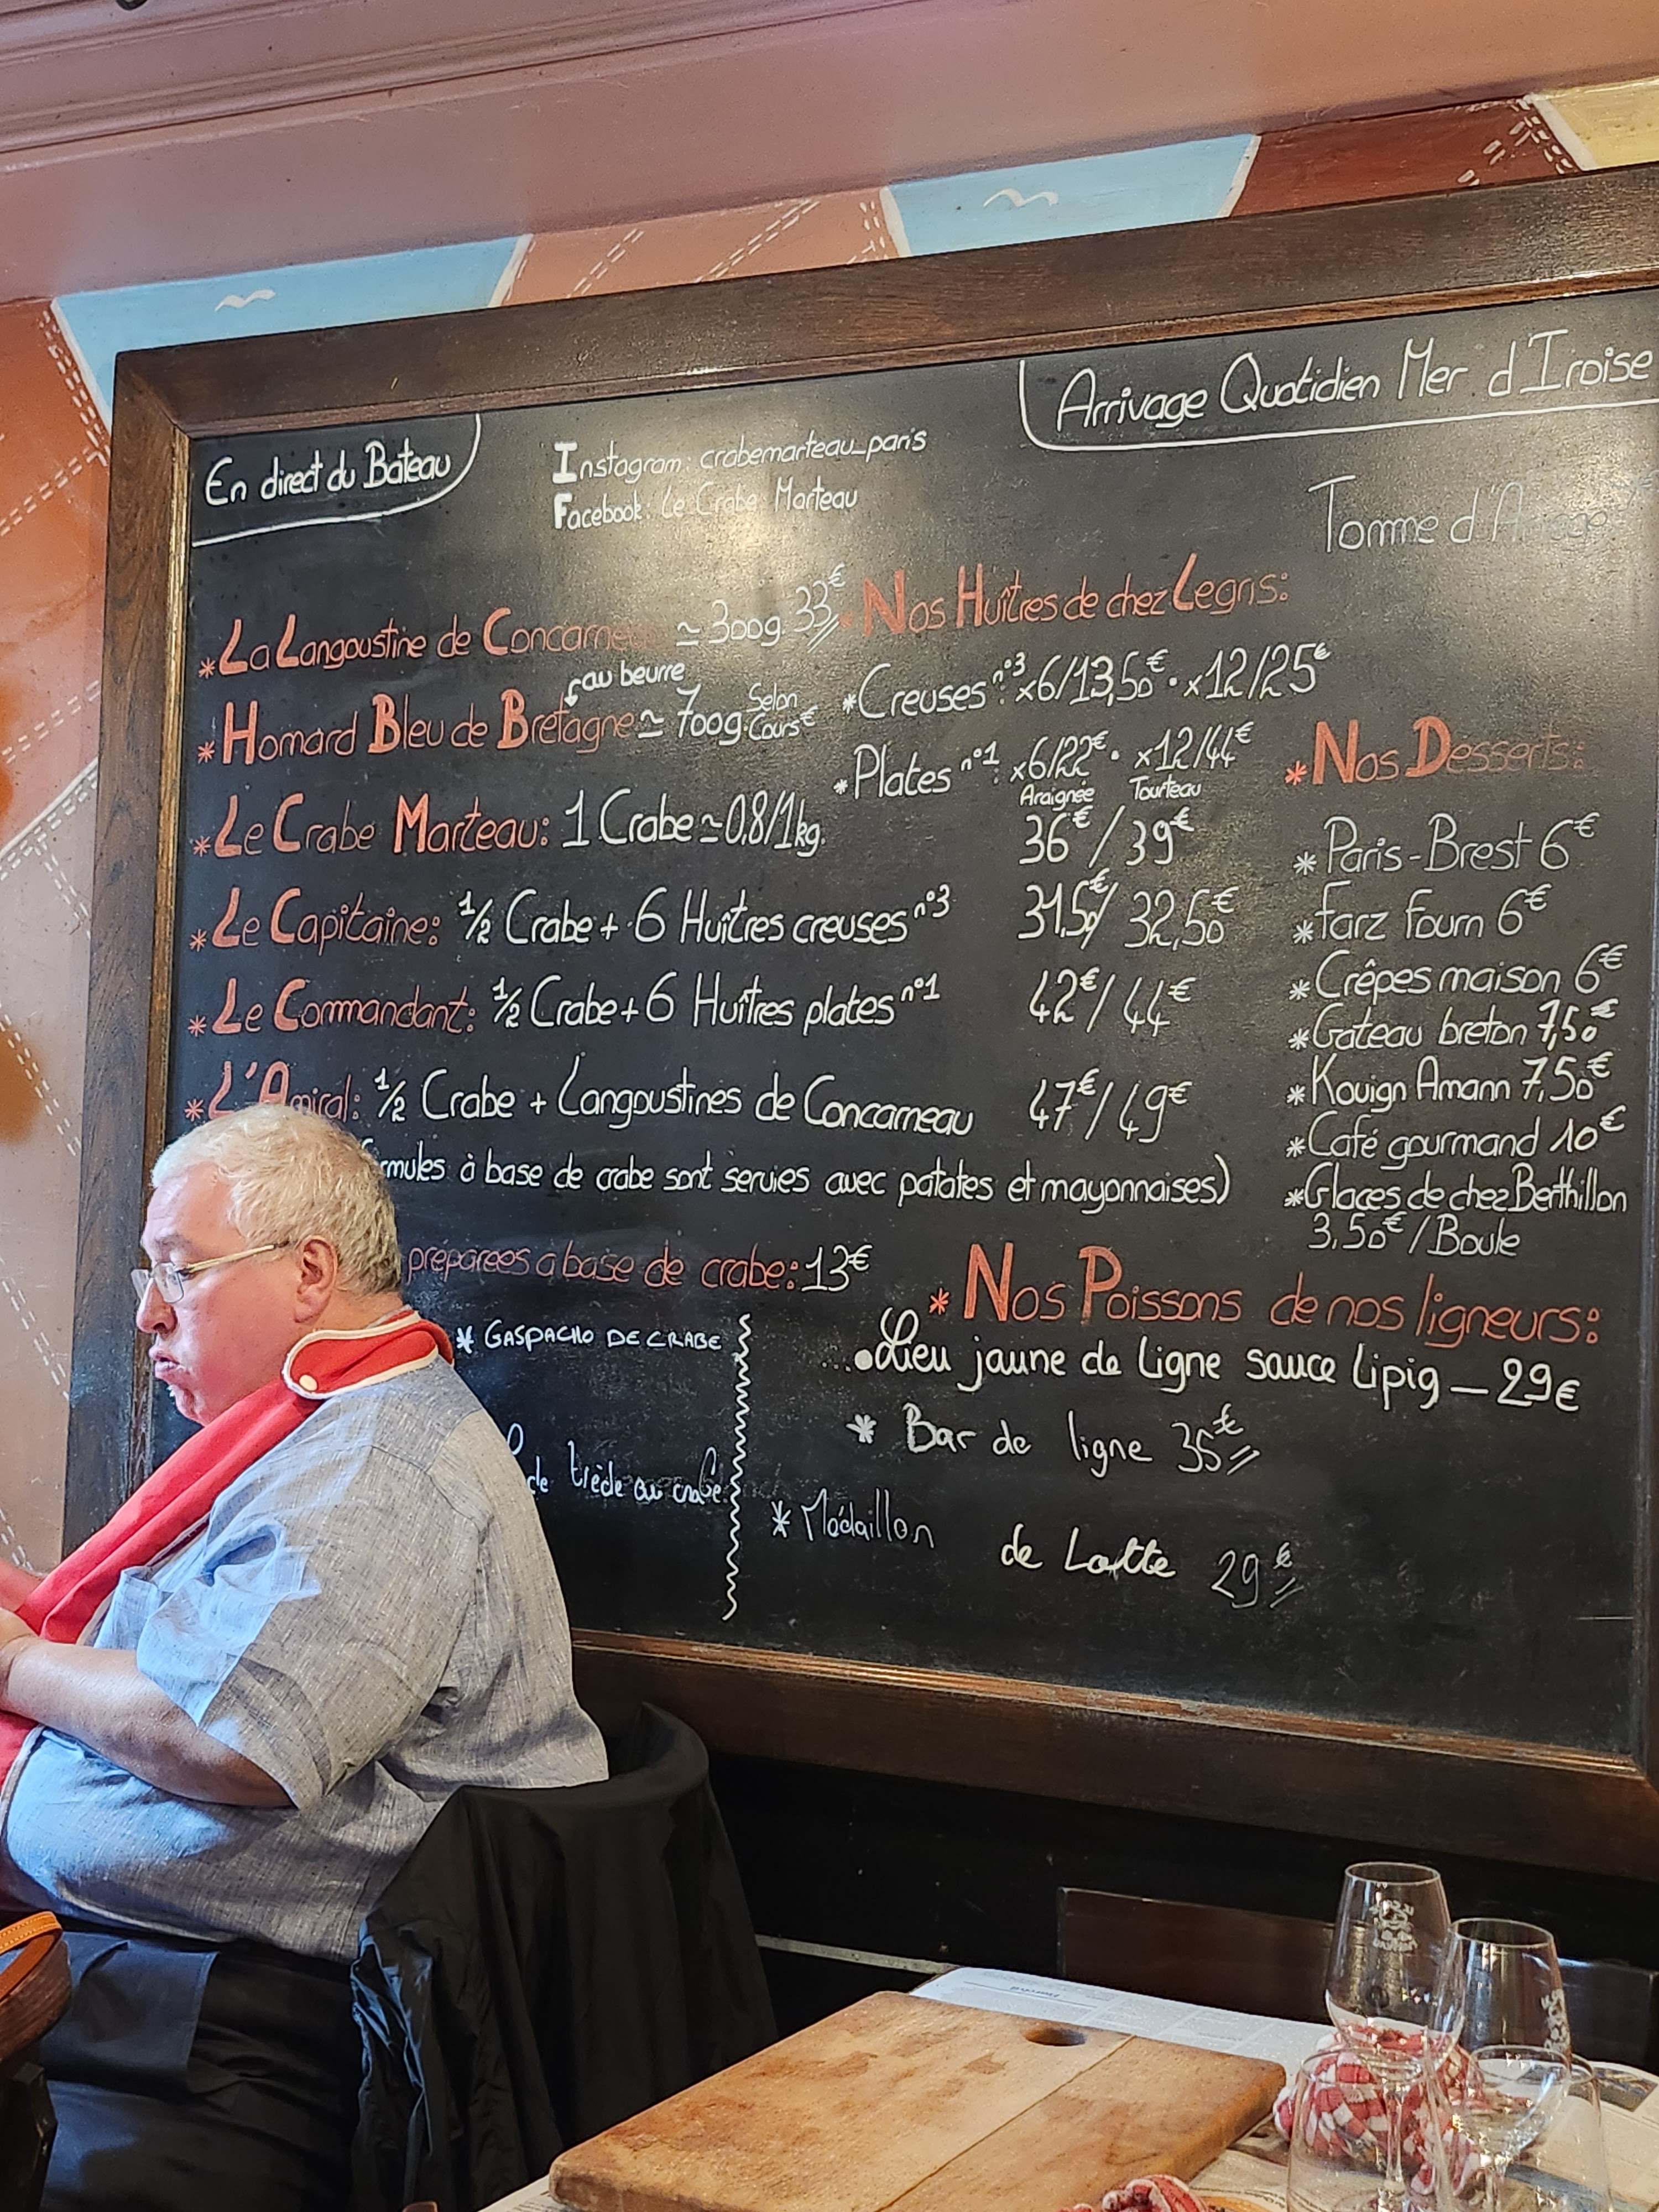 En direct du Bateau
Instagram: crabemarteau_paris
Facebook: Le Crabe Marteau
Arrivage Quotidien Mer d'Iroise
Tomme d'
* La Langoustine de Concarneau ≃ 300g. 33€
au beurre
* Homard Bleu de Bretagne ≃ 700g. Selon Cours €
* Le Crabe Marteau: 1 Crabe ≃ 0,8/1kg.
Araignee Tourteau
36€ / 39€
* Le Capitaine: 1/2 Crabe + 6 Huîtres creuses n°3 31,50€/ 32,50€
* Le Commandant: 1/2 Crabe + 6 Huîtres plates n°1 42€/ 44€
* L'Amiral: 1/2 Crabe + Langoustines de Concarneau 47€/ 49€
rmules à base de crabe sont servies avec patates et mayonnaises)
préparées a base de crabe: 13€
* GASPACHO DE CRABE
de trède au crabe
* Nos Huîtres de chez Legris:
* Creuses n°3: x6/13,50€ • x12/25€
* Plates n°1: x6/22€ • x12/44€
* Nos Desserts:
* Paris-Brest 6€
* Farz Fourn 6€
* Crêpes maison 6€
* Gateau breton 7,50€
* Kouign Amann 7,50€
* Café gourmand 10€
* Glaces de chez Berthillon
3,50€/Boule
* Nos Poissons de nos ligneurs:
• Lieu jaune de ligne sauce lipig — 29€
* Bar de ligne 35€
* Médaillon de Lotte 29€